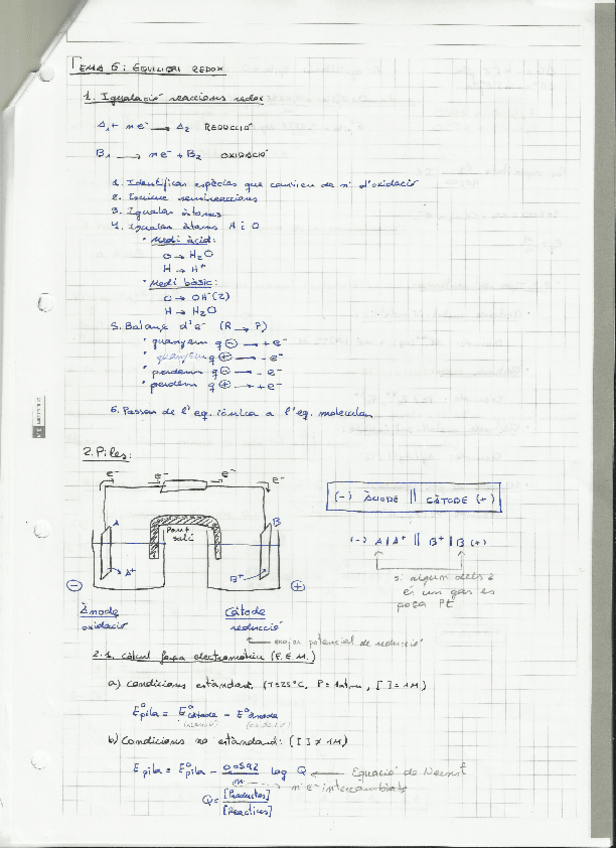 TEMA 6: EQUILIBRI REDOX
1. Igualació reaccions redox
A₁ + n e⁻ → A₂ REDUCCIÓ
B₁ → n e⁻ + B₂ OXIDACIÓ
1. Identificar espècies que canvien de nº d'oxidació
2. Escriure semireaccions
3. Igualar àtoms
4. Igualar àtoms H i O
· Medi àcid:
O → H₂O
H → H⁺
· Medi bàsic:
O → OH⁻(2)
H → H₂O
5. Balanç d'e⁻ (R → P)
· guanyem q ⊖ → + e⁻
· guanyem q ⊕ → - e⁻
· perdem q ⊖ → - e⁻
· perdem q ⊕ → + e⁻
6. Passar de l'eq. iònica a l'eq. molecular
2. Piles:
e⁻ e⁻ e⁻ e⁻
A Pont salí B
A⁺ B⁺
⊖ ⊕
Ànode Càtode
oxidació reducció
(-) ÀNODE || CÀTODE (+)
(-) A | A⁺ || B⁺ | B (+)
si algun dels 2
és un gas es
posa Pt
← major potencial de reducció
2.1. Càlcul força electromotriu (F.E.M.)
a) Condicions estàndard (T=25°C, P=1atm, [ ]=1M)
E°pila = E°càtode - E°ànode
b) Condicions no estàndard: ([ ] ≠ 1M)
E pila = E°pila - 0'0592/n log Q ← Equació de Nernst
nº e⁻ intercanviats
Q = [Productes]/[Reactius]